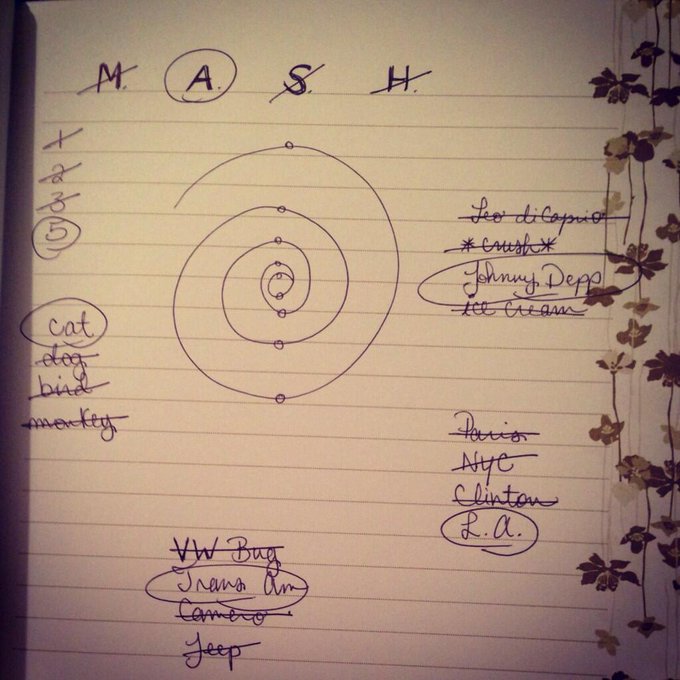 M. A. S. H.
1
2
3
5
Leo diCaprio
*crush*
Johnny Depp
ice cream
cat
dog
bird
monkey
Paris
NYC
Clinton
L.A.
VW Bug
Trans Am
Camero
Jeep